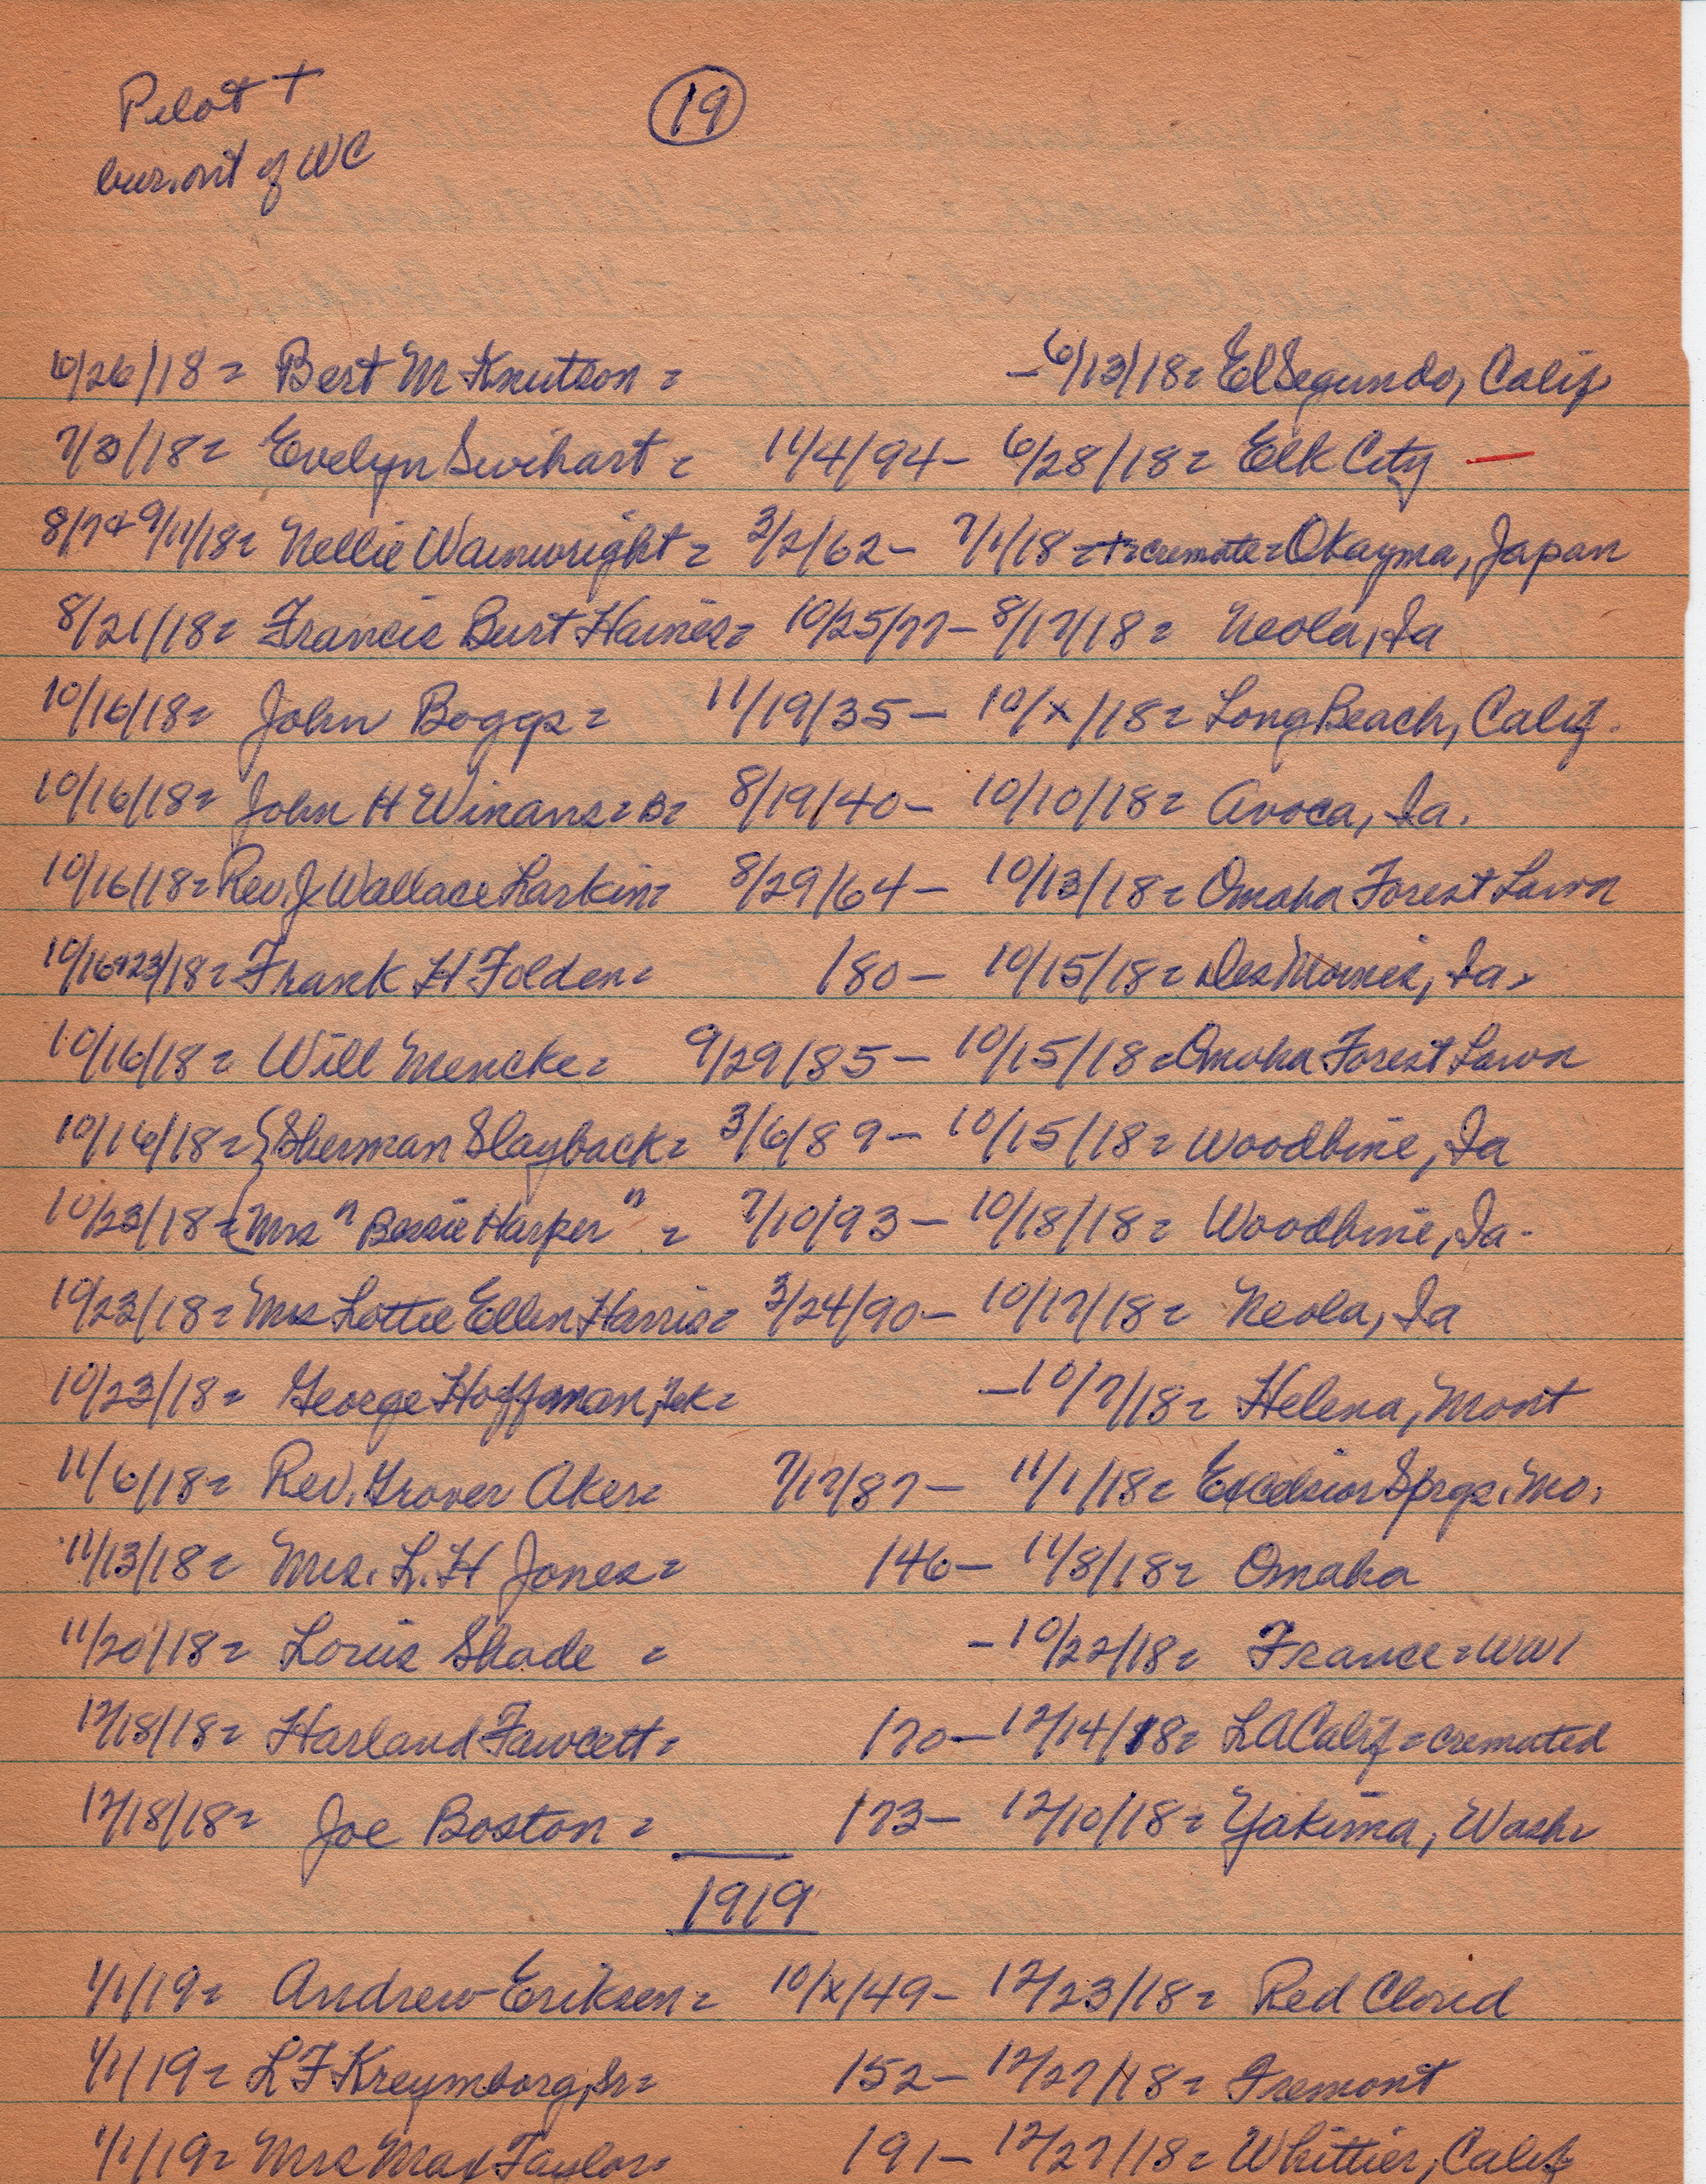 Pilot +
bur. out of WC
19
6/26/18 = Bert M Knutson = - 6/13/18 = El Segundo, Calif
7/3/18 = Evelyn Swihart = 11/4/94 - 6/28/18 = Elk City —
8/7 & 9/11/18 = Nellie Wainwright = 3/2/62 - 7/1/18 = cremate = Okayma, Japan
8/21/18 = Francis Burt Haines = 10/25/77 - 8/17/18 = Neola, Ia
10/16/18 = John Boggs = 11/19/35 - 10/x/18 = Long Beach, Calif.
10/16/18 = John H Winans = B = 8/19/40 - 10/10/18 = Avoca, Ia.
10/16/18 = Rev. J Wallace Larkin = 8/29/64 - 10/13/18 = Omaha Forest Lawn
10/16+23/18 = Frank H Folden = /80 - 10/15/18 = Des Moines, Ia.
10/16/18 = Will Mencke = 9/29/85 - 10/15/18 = Omaha Forest Lawn
10/16/18 = { Sherman Slayback = 3/6/89 - 10/15/18 = Woodbine, Ia
10/23/18 = { Mrs " Bessie Harper " = 7/10/93 - 10/18/18 = Woodbine, Ia.
10/23/18 = Mrs Lottie Ellen Harris = 3/24/90 - 10/17/18 = Neola, Ia
10/23/18 = George Hoffman, = - 10/7/18 = Helena, Mont
11/6/18 = Rev. Grover Aker = 7/17/87 - 11/1/18 = Excelsior Sprgs. Mo.
11/13/18 = Mrs. L. H Jones = /46 - 11/8/18 = Omaha
11/20/18 = Louis Shade = - 10/22/18 = France = WW1
12/18/18 = Harland Fawcett = /70 - 12/14/18 = LA Calif = cremated
12/18/18 = Joe Boston = /73 - 12/10/18 = Yakima, Wash.
1919
1/1/19 = Andrew Eriksen = 10/x/49 - 12/23/18 = Red Cloud
1/1/19 = L F Kreymborg, Sr = /52 - 12/27/18 = Fremont
1/1/19 = Mrs Max Taylor = /91 - 12/27/18 = Whittier, Calif